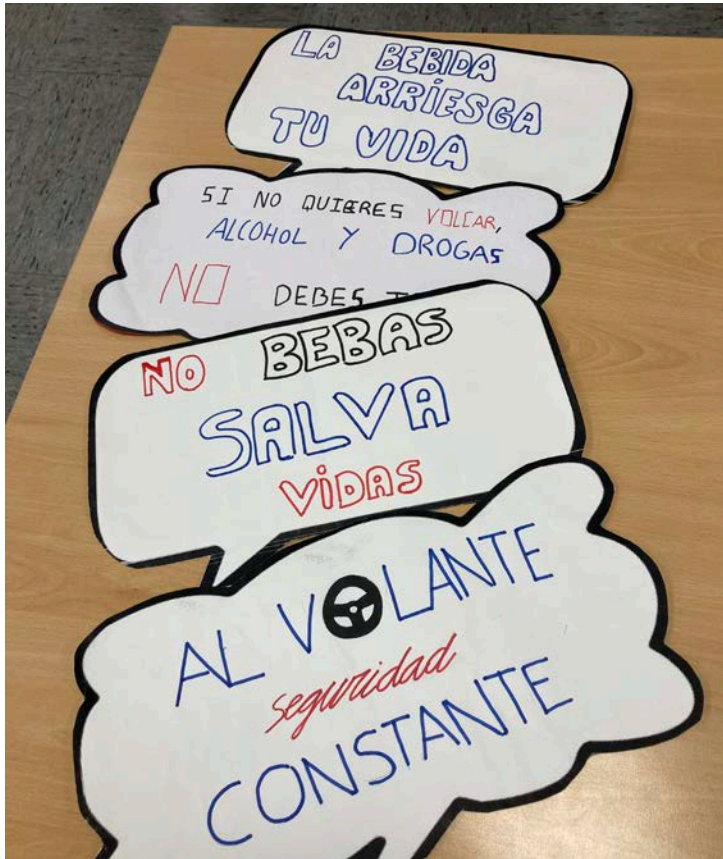 LA BEBIDA
ARRÍESGA
TU VIDA
SI NO QUIERES VOLCAR,
ALCOHOL Y DROGAS
NO DEBES
NO BEBAS
SALVA
ViDAS
AL VOLANTE
seguridad
CONSTANTE